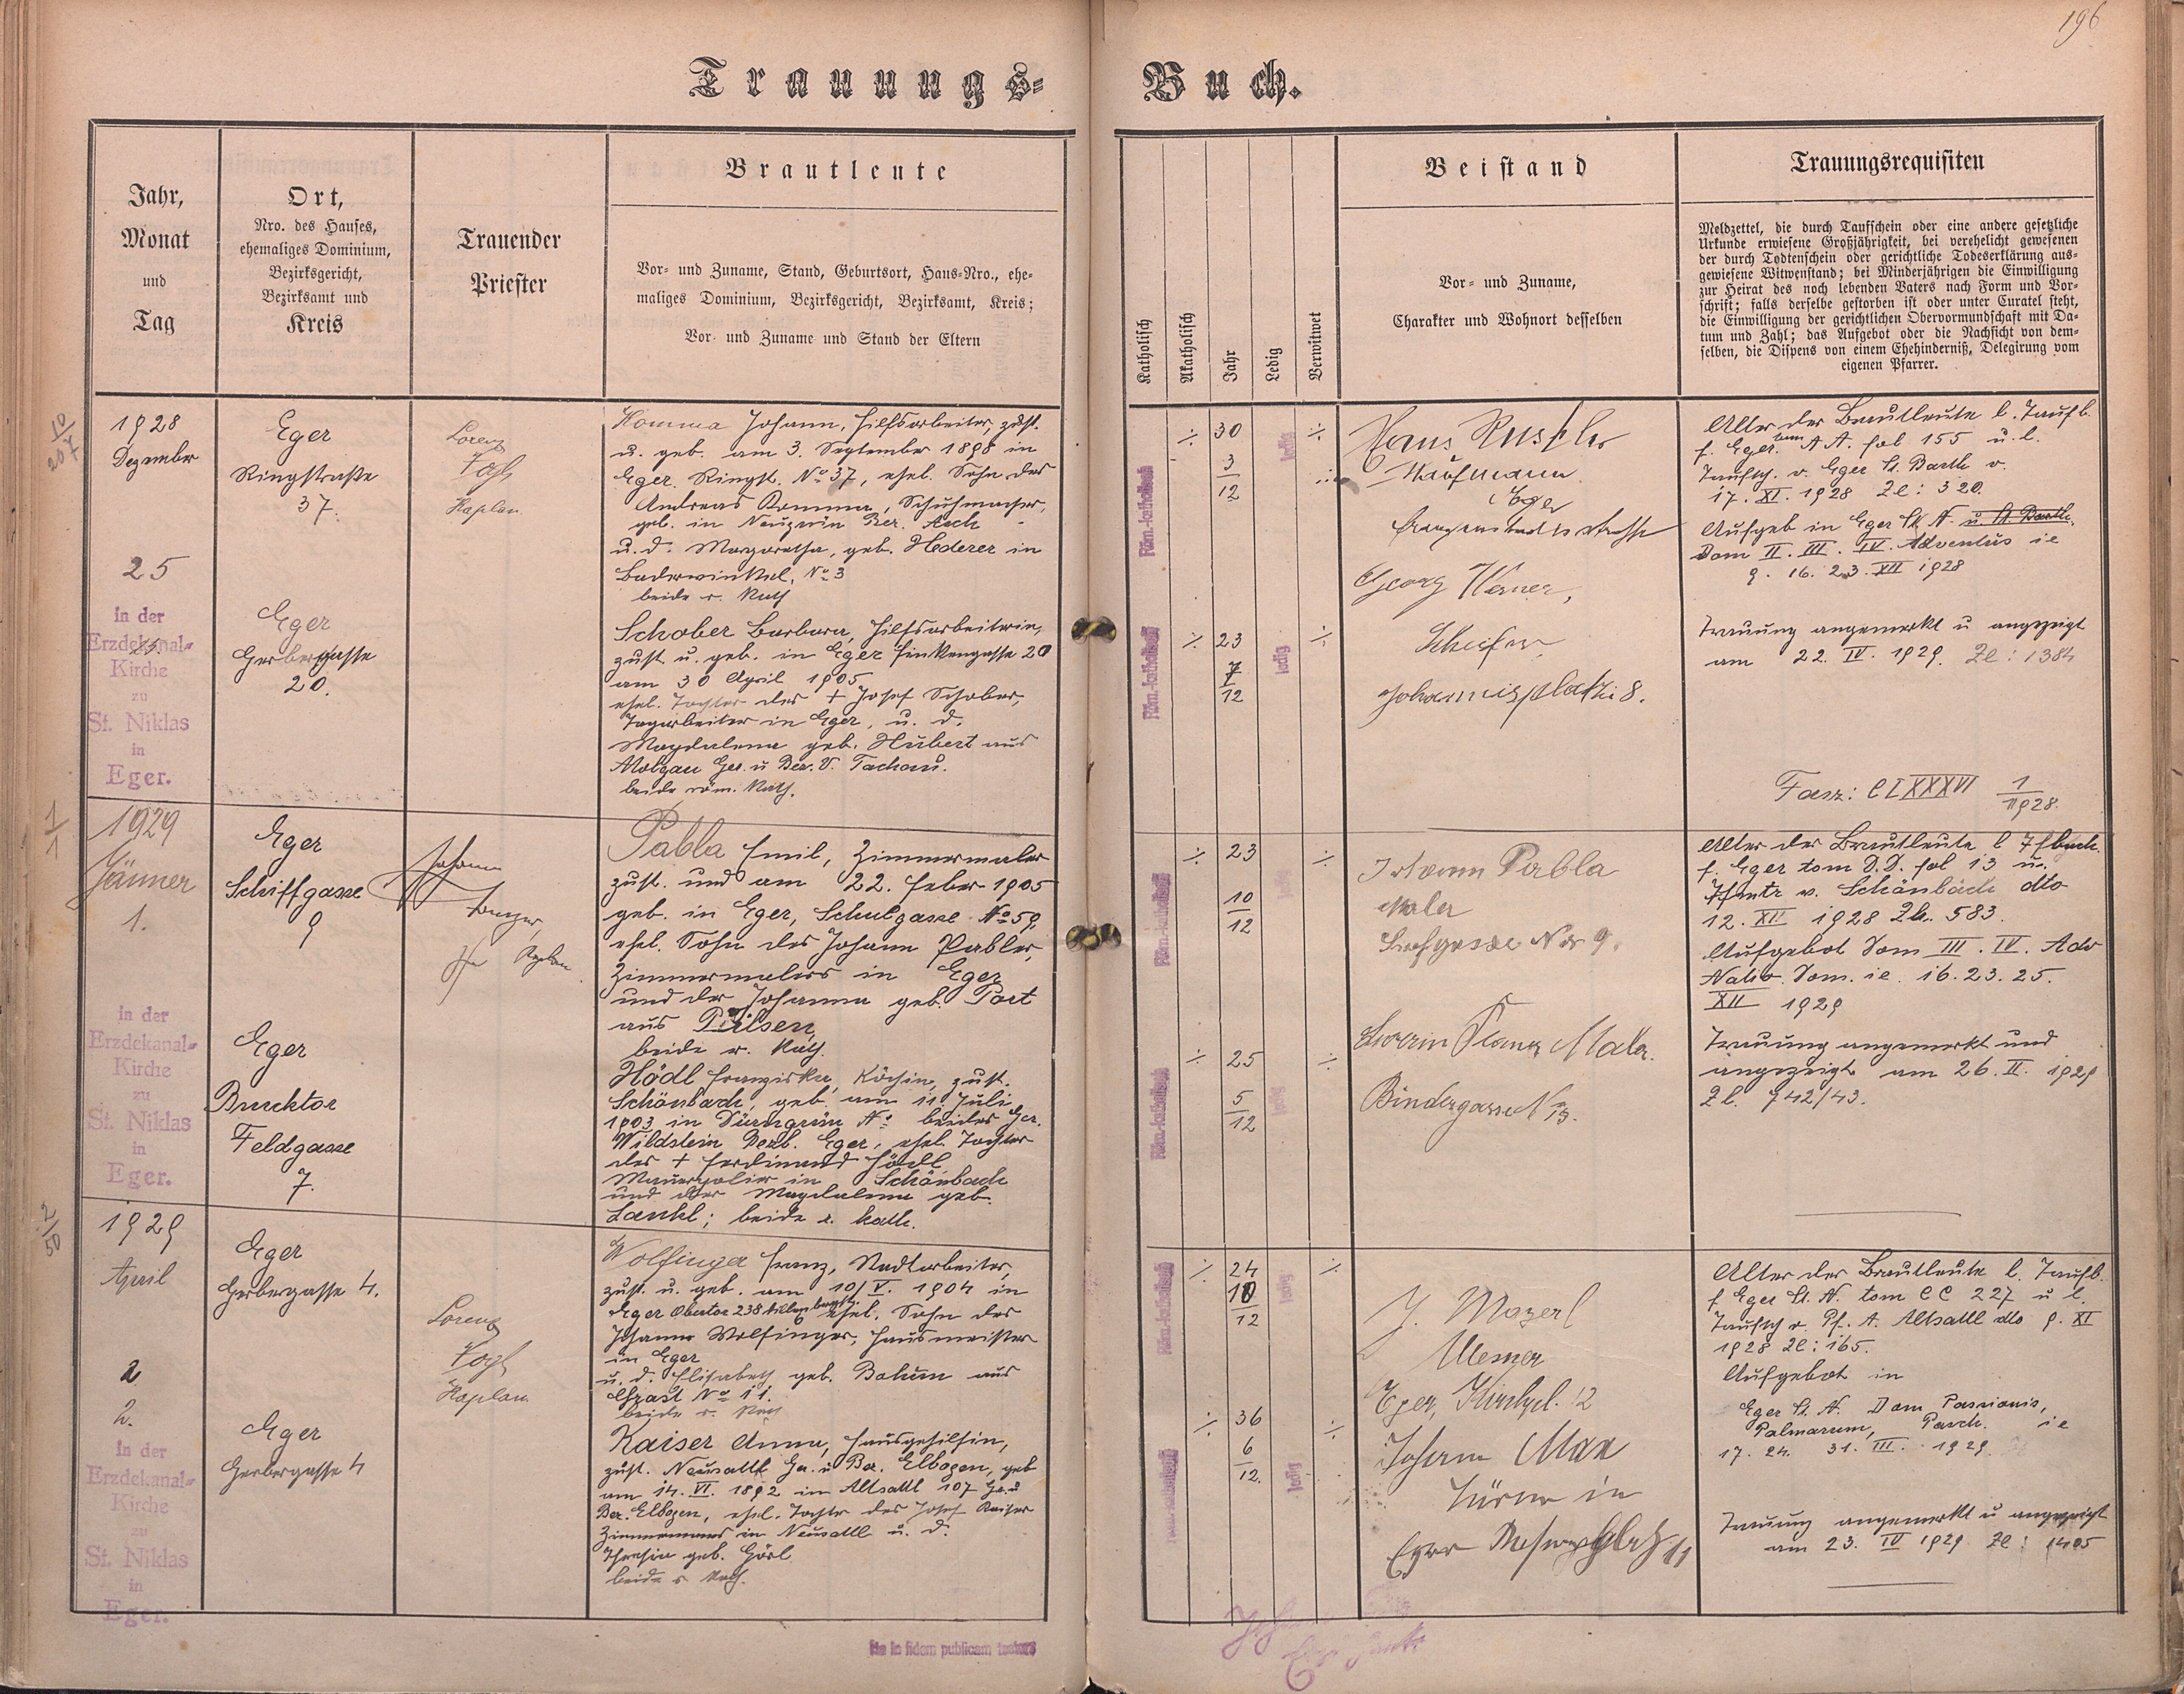 196
Trauungs-
Buch.
Jahr,
Monat
und
Tag
Ort,
Nro. des Hauses,
ehemaliges Dominium,
Bezirksgericht,
Bezirksamt und
Kreis
Trauender
Priester
Brautleute
Vor- und Zuname, Stand, Geburtsort, Haus-Nro., ehe-
maliges Dominium, Bezirksgericht, Bezirksamt, Kreis;
Vor- und Zuname und Stand der Eltern
Katholisch
Akatholisch
Jahr
Ledig
Verwitwet
Beistand
Vor- und Zuname,
Charakter und Wohnort desselben
Trauungsrequisiten
Meldzettel, die durch Taufschein oder eine andere gesetzliche
Urkunde erwiesene Großjährigkeit, bei verehelicht gewesenen
der durch Todtenschein oder gerichtliche Todeserklärung aus-
gewiesene Witwenstand; bei Minderjährigen die Einwilligung
zur Heirat des noch lebenden Vaters nach Form und Vor-
schrift; falls derselbe gestorben ist oder unter Curatel steht,
die Einwilligung der gerichtlichen Obervormundschaft mit Da-
tum und Zahl; das Aufgebot oder die Nachsicht von dem-
selben, die Dispens von einem Ehehinderniß, Delegirung vom
eigenen Pfarrer.
10
207
1928
Dezember
25
in der
Erzdekanal-
Kirche
zu
St. Niklas
in
Eger.
Eger
Ringstraße
37.
Eger
Gerbergasse
20.
Lorenz
Vogl
Kaplan
Komma Johann, Hilfsarbeiter, zust.
u. geb. am 3. September 1898 in
Eger, Ringst. No 37, ehel. Sohn des
Andreas Komma, Schuhmacher,
geb. in Bez. Asch
u. d. Margaretha, geb. Hederer in
No 3
beide r. kath
Schober Barbara, Hilfsarbeiterin,
zust. u. geb. in Eger Finkengasse 20
am 30 April 1905
ehel. Tochter des + Josef Schober,
Tagarbeiter in Eger, u. d.
Magdalena geb. Hubert aus
Ger. u Bez. Tachau.
beide röm. kath.
Röm.-katholisch
30
3
12
ledig
Röm.-katholisch
23
7
12
ledig
Hans
Kaufmann
Eger
Georg
Johannisplatz 8.
Alter der Brautleute l. Taufb.
f. Eger tom A A. fol 155 u. l.
Taufsch. v. Eger St. Barth v.
17. XI. 1928 Zl: 320.
Aufgeb in Eger St. N. u. St. Barth.
Dom II. III. IV. Adventus ie
9. 16. 23. XII 1928
Trauung angemerkt u angezeigt
am 22. IV. 1929. Zl: 1384
Fasz: CLXXXVI 1
1928.
1
1
1929
Jänner
1.
in der
Erzdekanal-
Kirche
zu
St. Niklas
in
Eger.
Eger
Schiffgasse
9
Eger
Brucktor
Feldgasse
7.
Johann
Pabla Emil, Zimmermaler
zust. und am 22. Feber 1905
geb. in Eger, Schulgasse No 59,
ehel. Sohn des Johann Pabler,
Zimmermalers in Eger
und der Johanna geb. Port
aus Pilsen,
beide r. kath.
Hödl Franziska, Köchin, zust.
Schönbach, geb. am 11. Juli
1903 in Dürngrün No beides Ger.
Wildstein Bezb. Eger, ehel. Tochter
des + Ferdinand Hödl
Maurerpolier in Schönbach
und der Magdalena geb.
Lankl; beide r. kath.
Röm.-katholisch
23
10
12
ledig
Röm.-katholisch
25
5
12
ledig
Johann Pabla
Maler
No 9.
Franz Maler.
Bindergasse
Alter der Brautleute l
f. Eger tom D.D. fol 13 u.
v. Schönbach dto
12. XII 1928 Zl. 583.
Aufgebot Dom III. IV. Adv
Nativ. Dom. ie. 16. 23. 25.
XII 1929
Trauung angemerkt und
angezeigt am 26. II. 1929
Zl. 742/43.
2
50
1929
April
2
2.
in der
Erzdekanal-
Kirche
zu
St. Niklas
in
Eger.
Eger
Gerbergasse 4.
Eger
Gerbergasse 4
Lorenz
Vogl
Kaplan
Wolfinger Franz, Stadtarbeiter,
zust. u. geb. am 10/V. 1904 in
Eger Obertor 238 ehel. Sohn des
Johann Wolfinger, Hausmeister
in Eger
u. d. Elisabeth geb. aus
No 11.
beide r. kath
Kaiser Anna, Hausgehilfin,
zust. Neusattl Ger. u Bez. Elbogen, geb
am 14. VI. 1892 in Altsattl 107 Ger. u
Bez. Elbogen, ehel. Tochter des Josef Kaiser
Zimmermanns in Neusattl u. d.
Theresia geb. Görl
beide r. kath.
Röm.-katholisch
24
10
12
ledig
36
6
12.
ledig
J. Mozerl
Mesner
Eger, Kirchpl. 12
Johann Max
Türmer in
Eger 11
Alter der Brautleute l. Taufb.
f. Eger St. N. tom CC 227 u l.
Taufsch v. Pf. A. Altsattl dto 9. XI
1928 Zl: 165.
Aufgebot in
Eger St. N. Dom Passionis,
Palmarum, Pasch. ie
17. 24. 31. III. 1929.
Trauung angemerkt u angezeigt
am 23. IV 1929 Zl: 1405
ita in fidem publicam testor